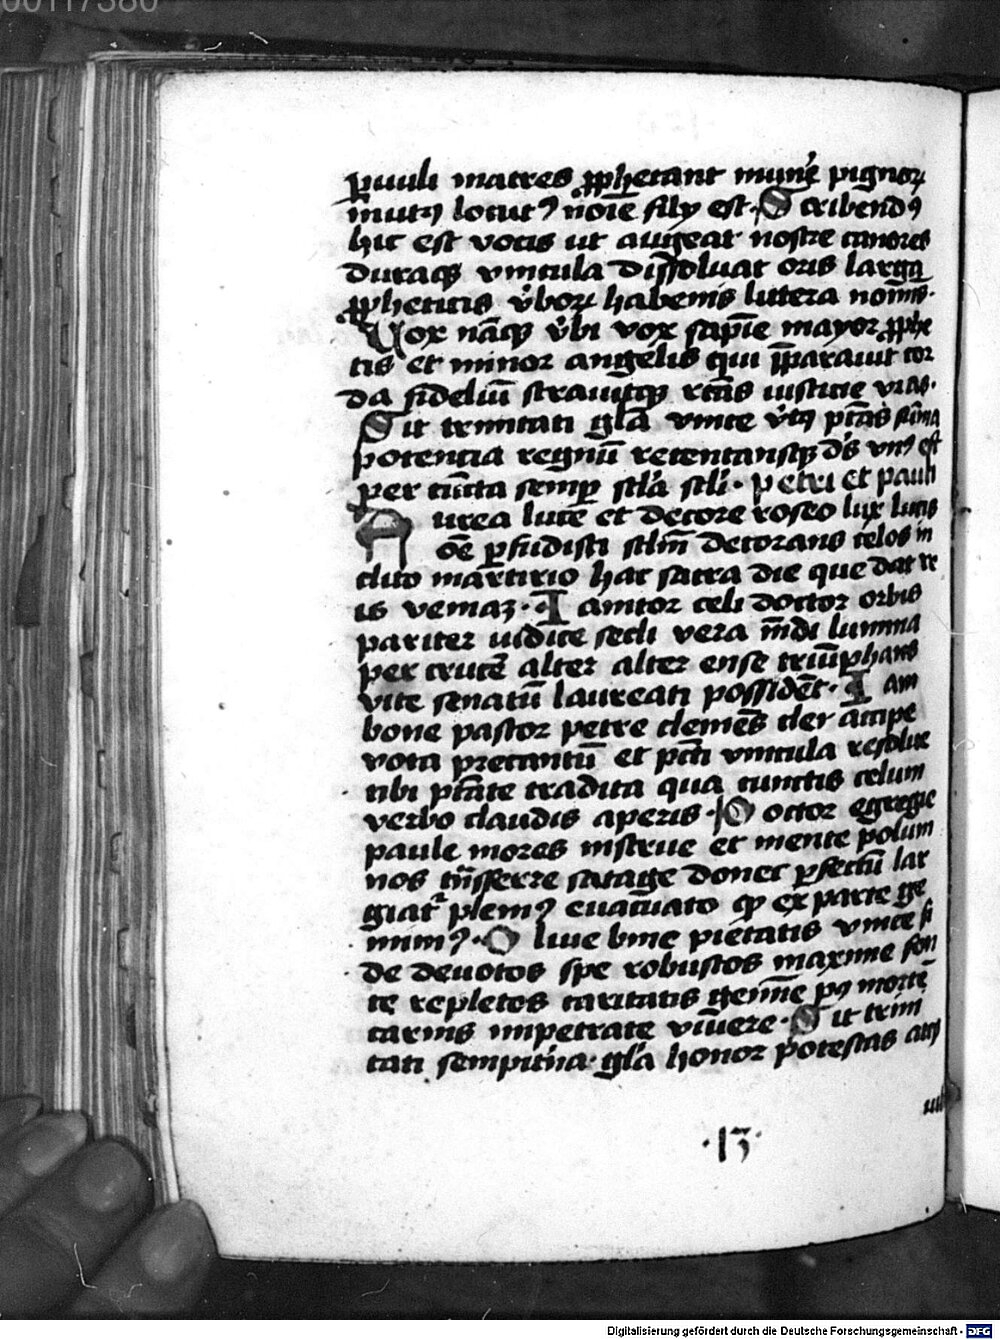 00117380
pͣuuli matres ꝓphetant mune̾ pignoꝝ
mutꝰ locutꝰ noīe filij est· Scribendꝰ
hic est vocis ut augeat nostre canores
duraqꝫ vincula dissoluat oris larga
ꝓpheticis v̾boꝝ habenis littera noīnis·
Vox nāqꝫ v̾bi vox sapīe mayor ꝓphe
tis et minor angelis qui p̄parauit cor
da fideliū strauitqꝫ rc̄tās iusticie vias·
Sit trinitati gl̄a vnice v̾tꝰ ptās sūma
potencia regnū retentansqꝫ ds̄ vnꝰ est
per cuncta semꝑ scl̄a scl̄i· petri et pauli
Aurea luce et decore roseo lux lucis
oē ꝑfudisti scl̄m decorans celos in
clito martirio hac sacra die que dat re
is veniaꝫ· Ianitor celi doctor orbis
pariter iudice secli vera mūdi lumina
per crucē alter alter ense triūphans
vite senatū laureati possidēt· Iam
bone pastor petre clemēs cler accipe
vota precantū et pcc̄i vincula resolue
tibi ptāte tradita qua cunctis celum
verbo claudis aperis· Doctor egregie
paule mores instrue et mente polum
nos tn̄sferre satage donec ꝑfectū lar
giatᷣ plenīꝰ euacuato qͦ ex parte ge
rimꝰ· Oliue bine pietatis vnice fi
de deuotos spe robustos maxime fon
te repletos caritatis gemīe pꝰ mortē
carnis impetrate viuere· Sit trini
tati sempit̾na· gl̄a honor potestas atqꝫ
iub
·13·
Digitalisierung gefördert durch die Deutsche Forschungsgemeinschaft - DFG